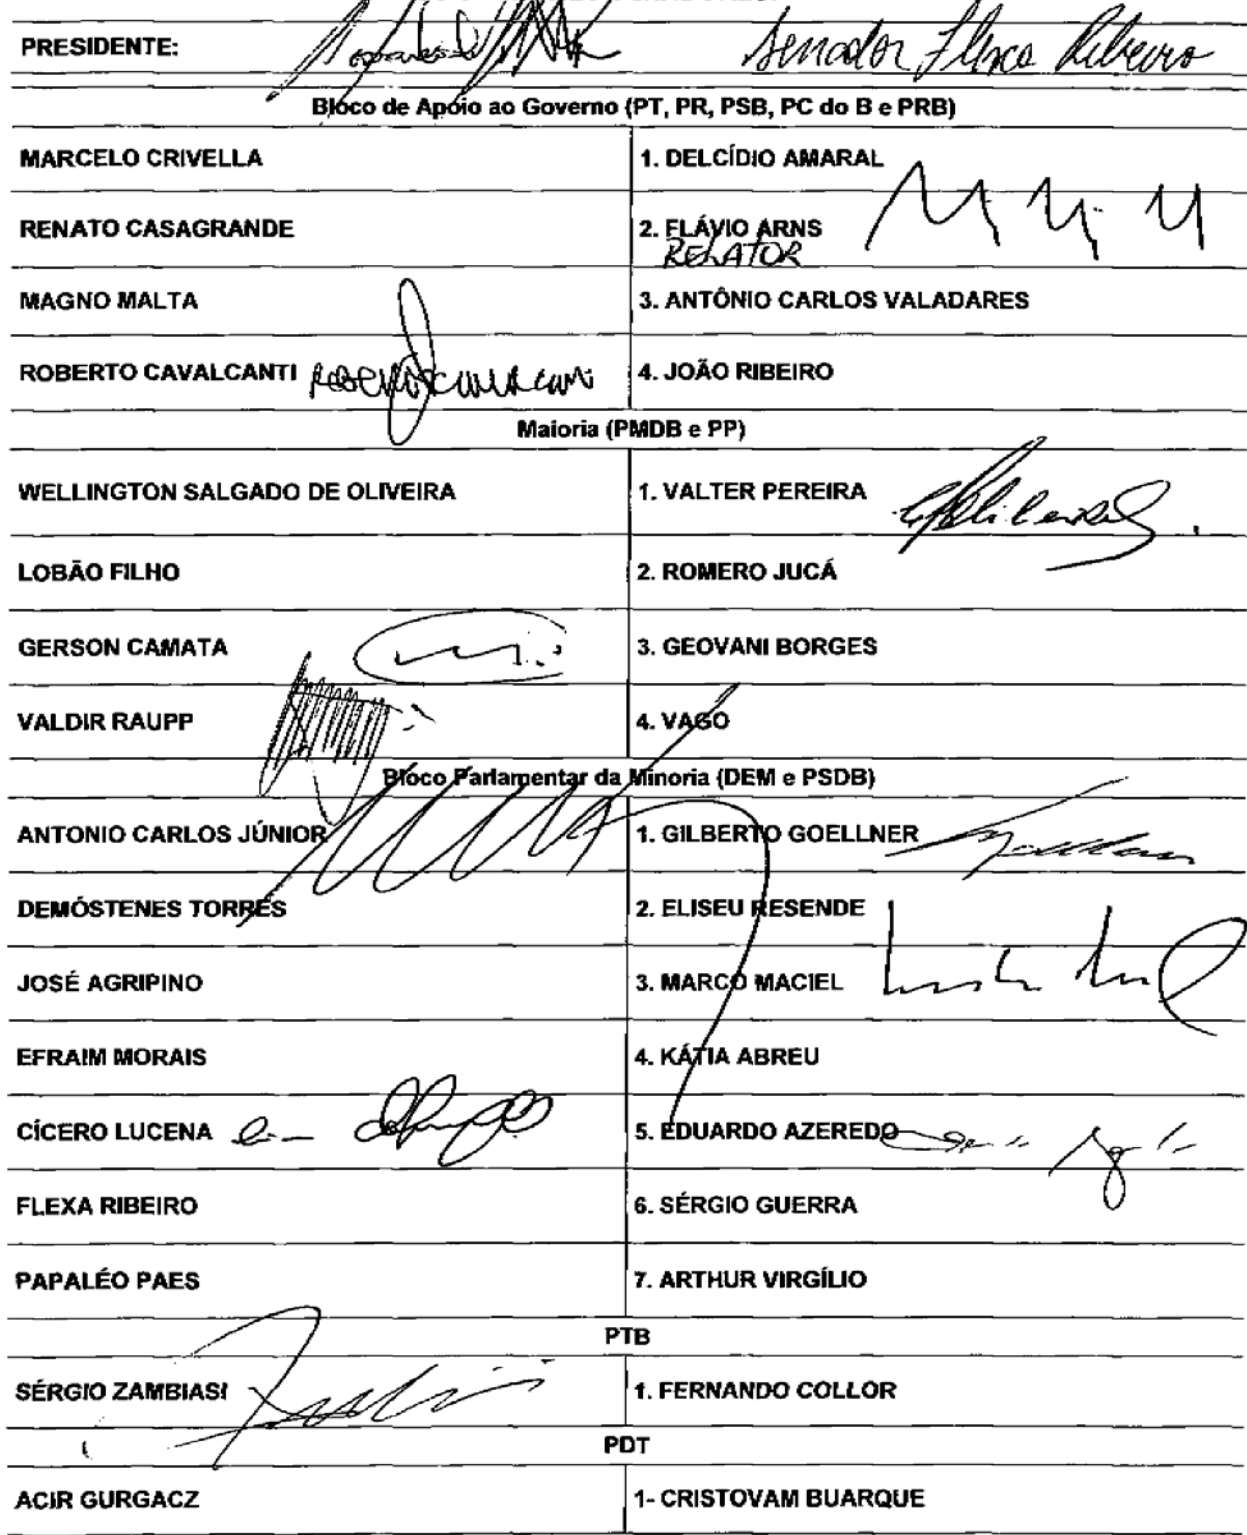 PRESIDENTE: Senador Flexa Ribeiro
Bloco de Apoio ao Governo (PT, PR, PSB, PC do B e PRB)
MARCELO CRIVELLA 1. DELCÍDIO AMARAL
RENATO CASAGRANDE 2. FLÁVIO ARNS
RELATOR
MAGNO MALTA 3. ANTÔNIO CARLOS VALADARES
ROBERTO CAVALCANTI 4. JOÃO RIBEIRO
Maioria (PMDB e PP)
WELLINGTON SALGADO DE OLIVEIRA 1. VALTER PEREIRA
LOBÃO FILHO 2. ROMERO JUCÁ
GERSON CAMATA 3. GEOVANI BORGES
VALDIR RAUPP 4. VAGO
Bloco Parlamentar da Minoria (DEM e PSDB)
ANTONIO CARLOS JÚNIOR 1. GILBERTO GOELLNER
DEMÓSTENES TORRES 2. ELISEU RESENDE
JOSÉ AGRIPINO 3. MARCO MACIEL
EFRAIM MORAIS 4. KÁTIA ABREU
CÍCERO LUCENA 5. EDUARDO AZEREDO
FLEXA RIBEIRO 6. SÉRGIO GUERRA
PAPALÉO PAES 7. ARTHUR VIRGÍLIO
PTB
SÉRGIO ZAMBIASI 1. FERNANDO COLLOR
PDT
ACIR GURGACZ 1- CRISTOVAM BUARQUE